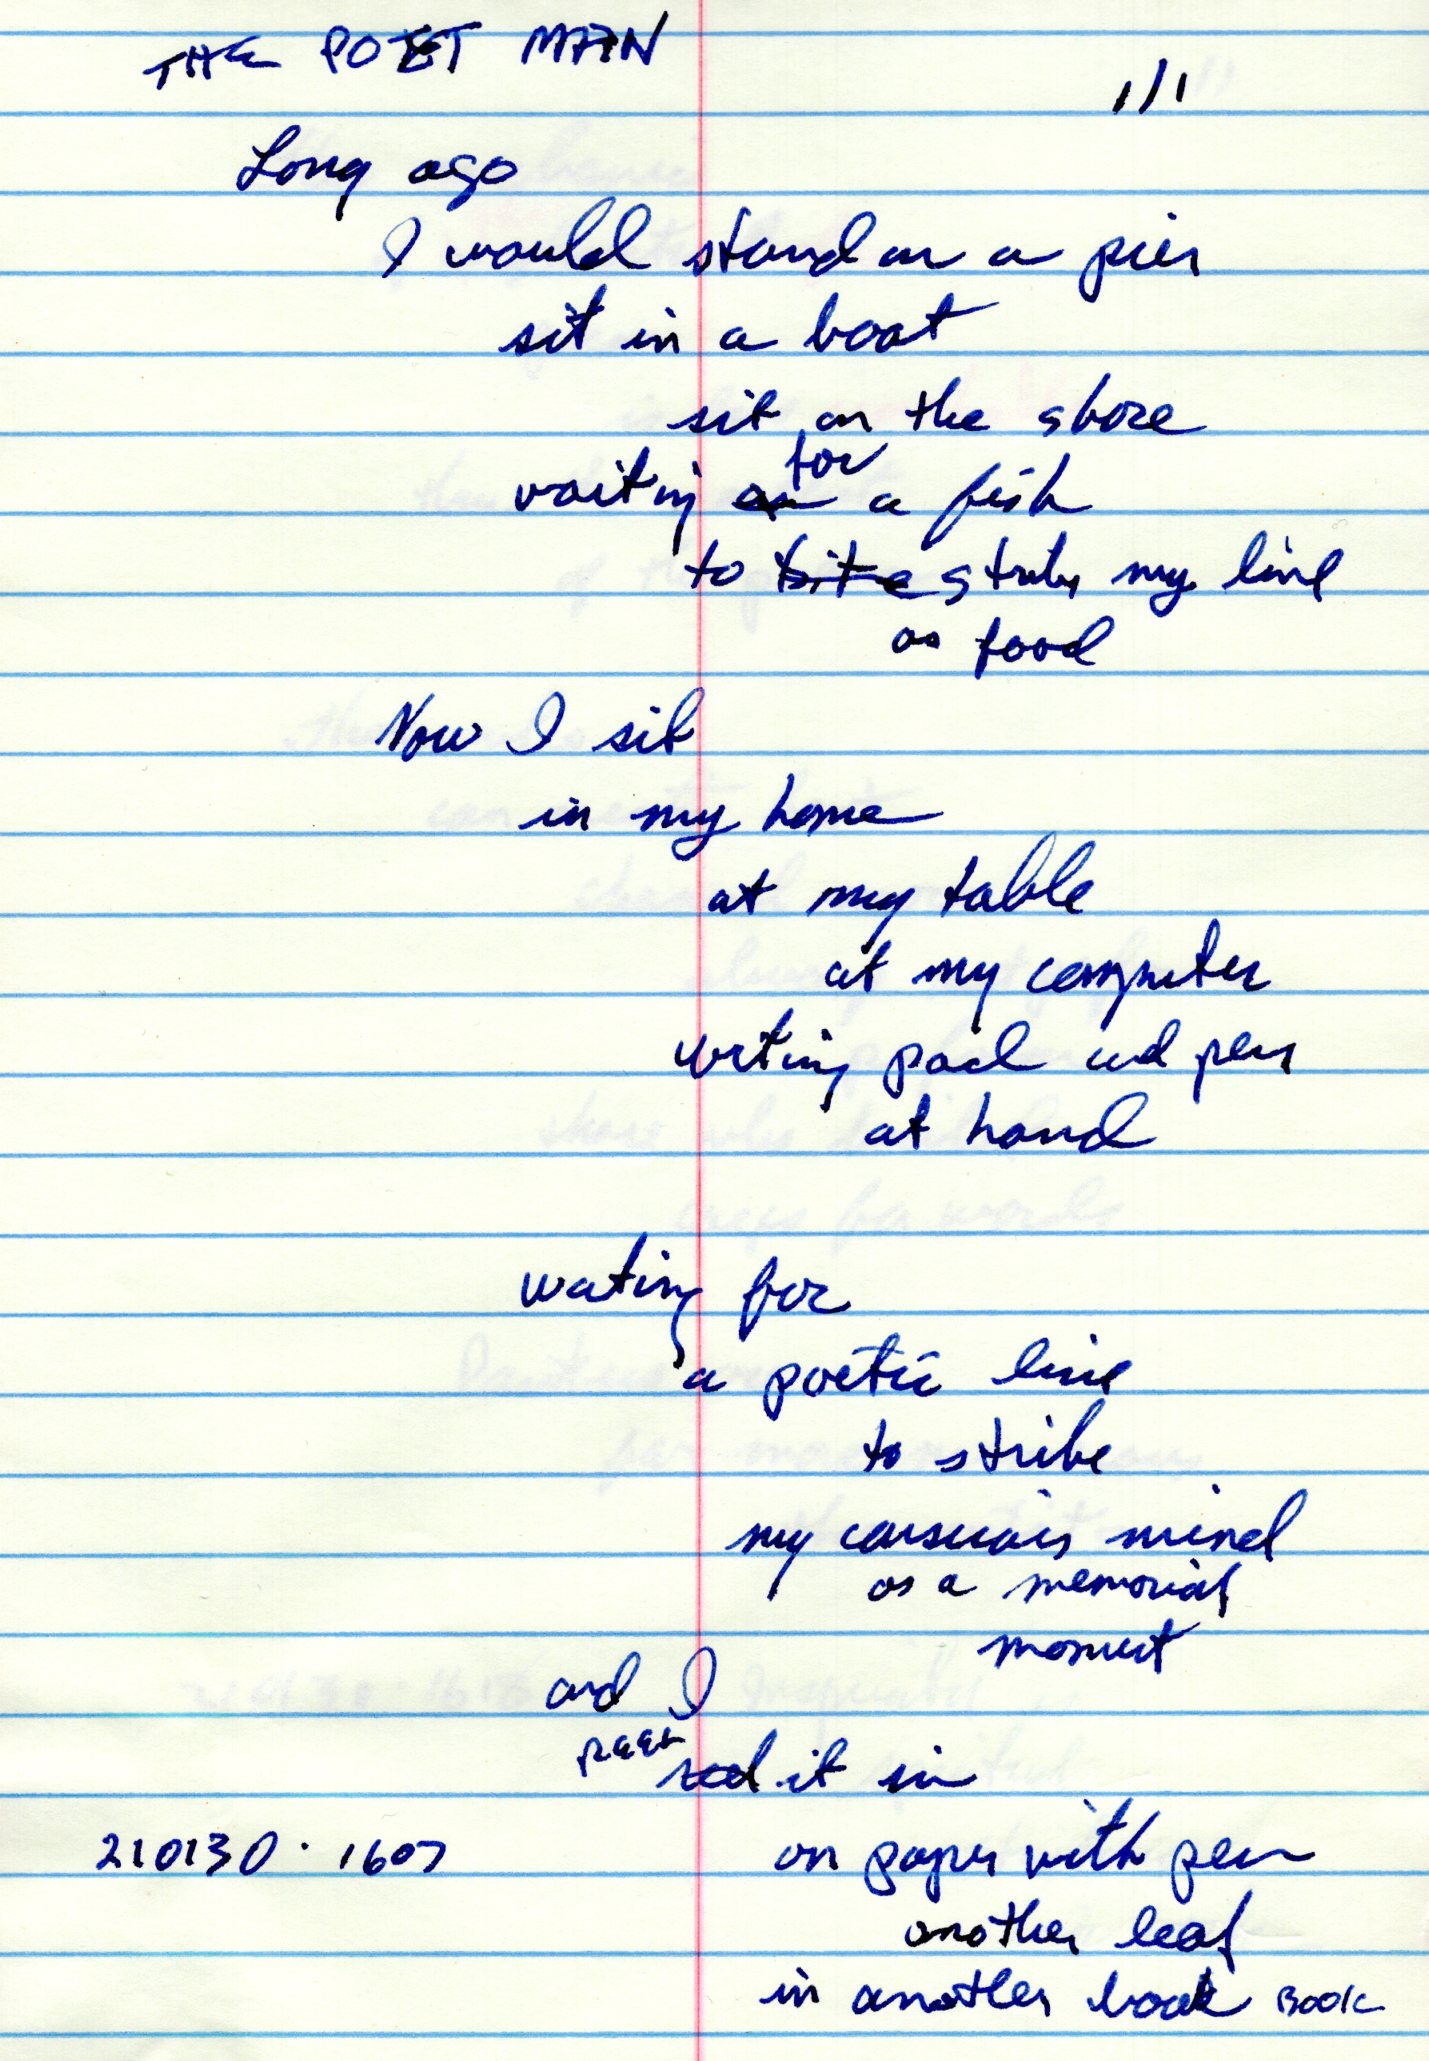 THE POET MAN
1/1
Long ago
I would stand on a pier
sit in a boat
sit on the shore
for
waiting on a fish
to bite strike my line
as food
Now I sit
in my home
at my table
at my computer
writing pad and pen
at hand
wating for
a poetic line
to strike
my consciois mind
as a memorial
moment
and I
reel it in
on paper with pen
210130 · 1607
another leaf
in another book BOOK